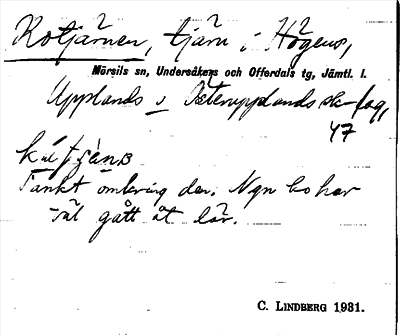 Kotjärnen, tjärn i Högens,
Mörsils sn, Undersåkers och Offerdals tg, Jämtl. l.
Upplands o Österupplands sk-lag,
47
Tankt omkring den. Ngn ko har
väl gått åt där.
C. LINDBERG 1931.